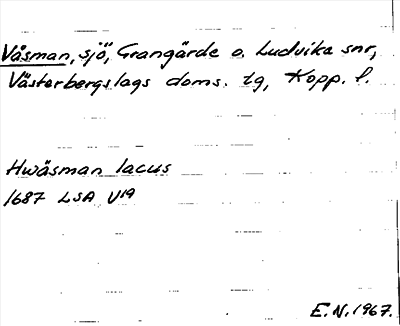 Väsman, sjö, Grangärde o. Ludvika snr,
Västerbergslags doms. tg, Kopp. l.
Hwäsman lacus
1687 LSA U19
E.N. 1967.